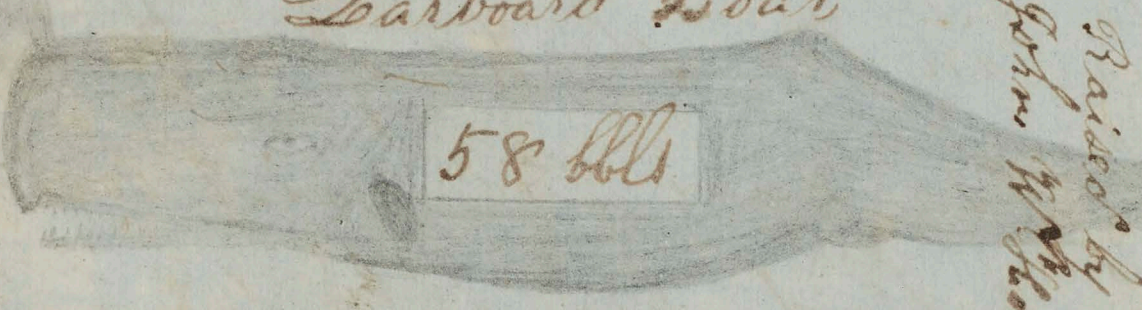 Larboard Boat
58 bbls
Raised by
John